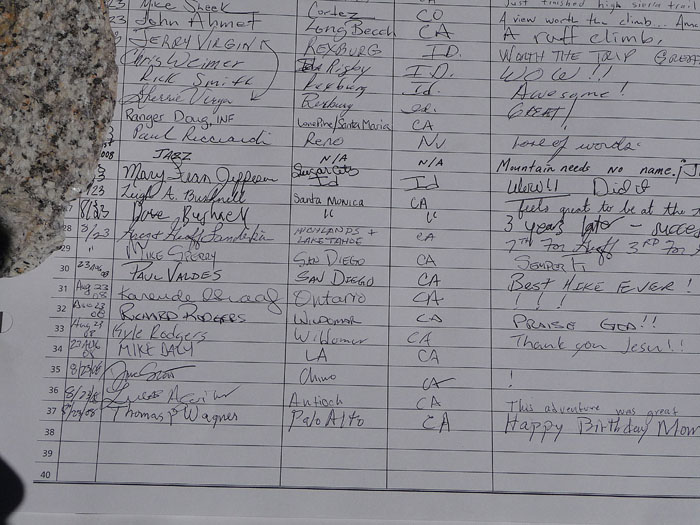 23 Mike Sheek Cortez CO Just finished high sierra trail
23 John Ahmet Long Beach CA A view worth the climb...
JERRY VIRGIN REXBURG ID. A ruff climb,
Chris Weimer Rigby I.D. WORTH THE TRIP GREAT
Rick Smith Rexburg Id. WOW!!
Sherrie Virgin Rexburg id. Awesome!
Rangers Doug, INF Lone Pine/Santa Maria CA GREAT!
Paul Ricciardi Reno NV Loss of words.
008 JAZZ N/A N/A Mountain needs no name.
Mary Fern Jepperson Sugar City Id Id WOW!! Did it
23 Leigh A. Bushnell Santa Monica CA feels great to be at the
27 8/23 Dave Bushnell " " 3 years later - success
28 8/23 HIGHLANDS + LAKE TAHOE CA 7TH For 3RD For
29 " MIKE SPERRY SAN DIEGO CA SEMPER FI
30 23 AUG 08 PAUL VALDES SAN DIEGO CA BEST HIKE EVER!
31 Aug 23 08 Ontario CA !!!
32 Aug 23 08 RICHARD RODGERS WILDOMAR CA PRAISE GOD!!
33 Aug 23 08 Kyle Rodgers Wildomar CA Thank you Jesus!!!
34 23 AUG 08 MIKE DALY LA CA
35 8/23/08 Chino CA !
36 8/23/08 Lucas Antioch CA This adventure was great
37 8/23/08 Thomas P Wagner Palo Alto CA Happy Birthday Mom
38
39
40